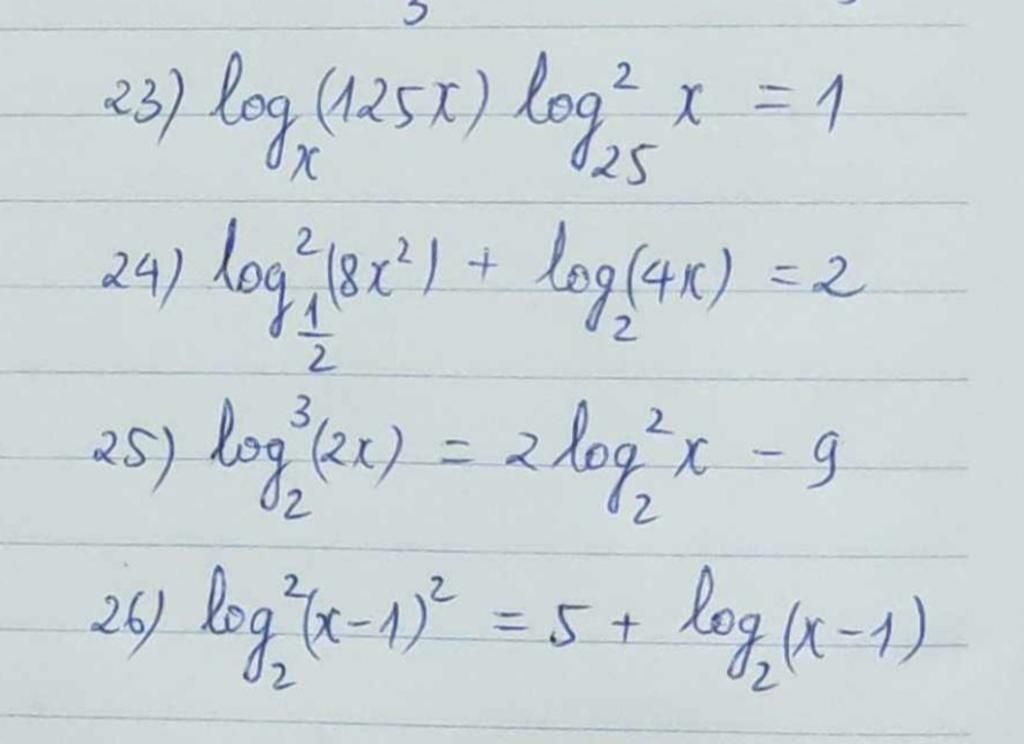 23) log_x(125x) log²_25 x = 1
24) log²_{1/2}(8x²) + log_2(4x) = 2
25) log³_2(2x) = 2log²_2 x - 9
26) log²_2(x-1)² = 5 + log_2(x-1)